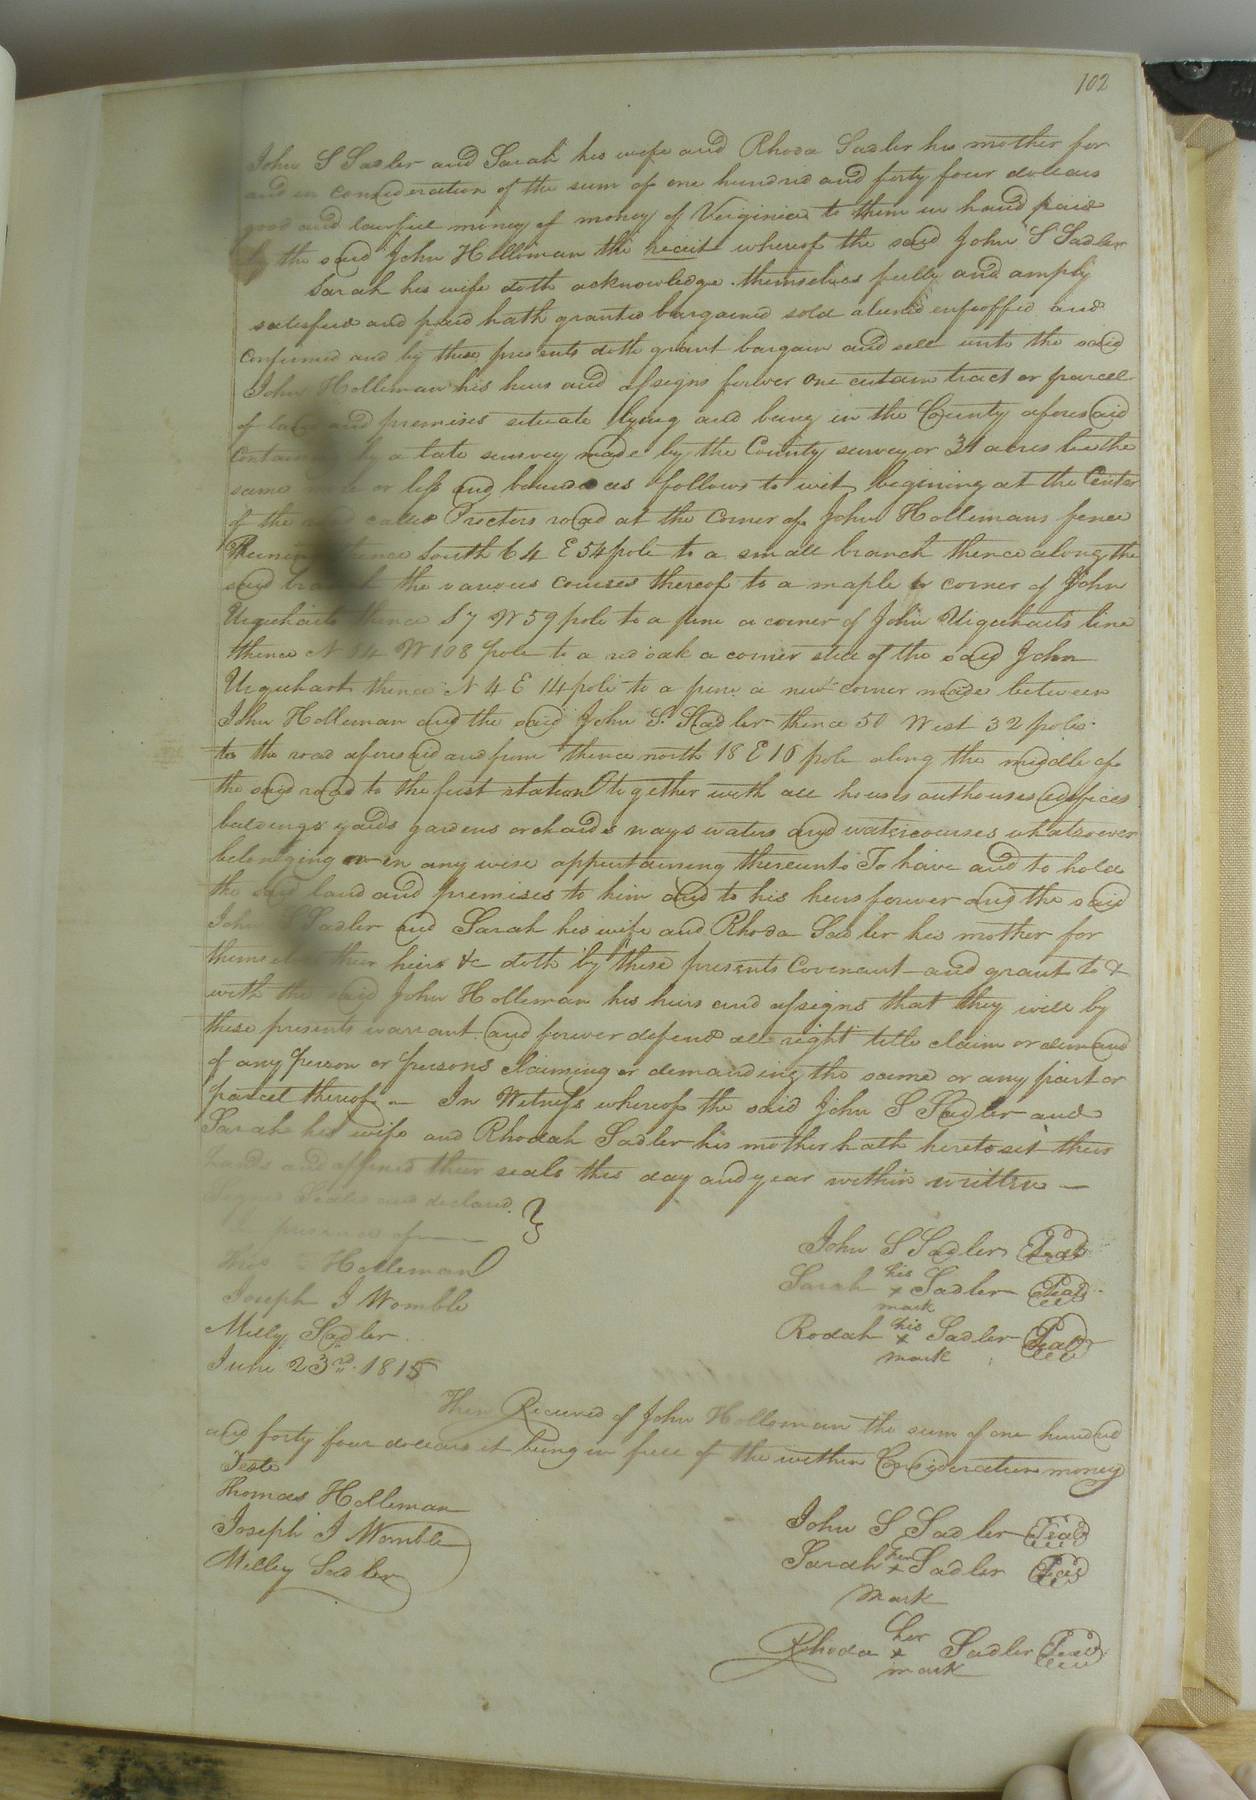 102
John S Sadler and Sarah his wife and Rhoda Sadler his mother for
and in consideration of the sum of one hundred and forty four dolears
good and lawfull money of money of Virginia to them in hand paid
by the said John Holliman the receit whereof the said John S Sadler
Sarah his wife doth acknowledge themselves fully and amply
satisfied and paid hath granted bargained sold aliened enfeoffed and
confirmed and by these presents doth grant bargain and sell unto the said
John Holleman his heirs and assigns forever one certain tract or parcel
of land and premises situate lying and being in the County aforesaid
by a late survey made by the County surveyor 31 acres be the
same or less and bounded as follows to wit begining at the Center
of the road called Proctors road at the corner of John Hollemans fence
thence South 64 E 54 pole to a small branch thence along the
said branch the various courses thereof to a maple corner of John
Urquharts thence S 7 W 59 pole to a pine a corner of John Urquharts line
thence N 54 W 108 pole to a red oak a corner tree of the said John
Urquhart thence N 4 E 14 pole to a pine a new corner made between
John Holleman and the said John S. Sadler thence 50 West 32 poles
to the road aforesaid and from thence north 18 E 16 pole along the middle of
the said road to the first station together with all houses outhouses edefices
buldings yards gardens orchards ways waters and watercourses whatsoever
belonging or in any wise appertaining thereunto To have and to hold
the said land and premises to him and to his heirs forever and the said
John S Sadler and Sarah his wife and Rhoda Sadler his mother for
themselves their heirs &c doth by these presents covenant and grant to &
with the said John Holleman his heirs and assigns that they will by
these presents warrant and forever defend all right title claim or demand
of any person or persons claiming or demanding the same or any part or
parcel thereof — In Witness whereof the said John S Sadler and
Sarah his wife and Rhodah Sadler his mother hath hereto set their
hands and affixed their seals this day and year within written —
Seald and declared }
presence of
John S Sadler Seal
Holleman
Sarah his x mark Sadler Seal
Joseph J Womble
Rodah his x mark Sadler Seal
Milly Sadler
June 23rd 1815
Then Received of John Holleman the sum of one hundred
and forty four dollars it being in full of the within Consideration money
Teste
Thomas Holleman
John S Sadler Seal
Joseph J Womble
Sarah her x mark Sadler Seal
Milley Sadler
Rhoda her x mark Sadler Seal